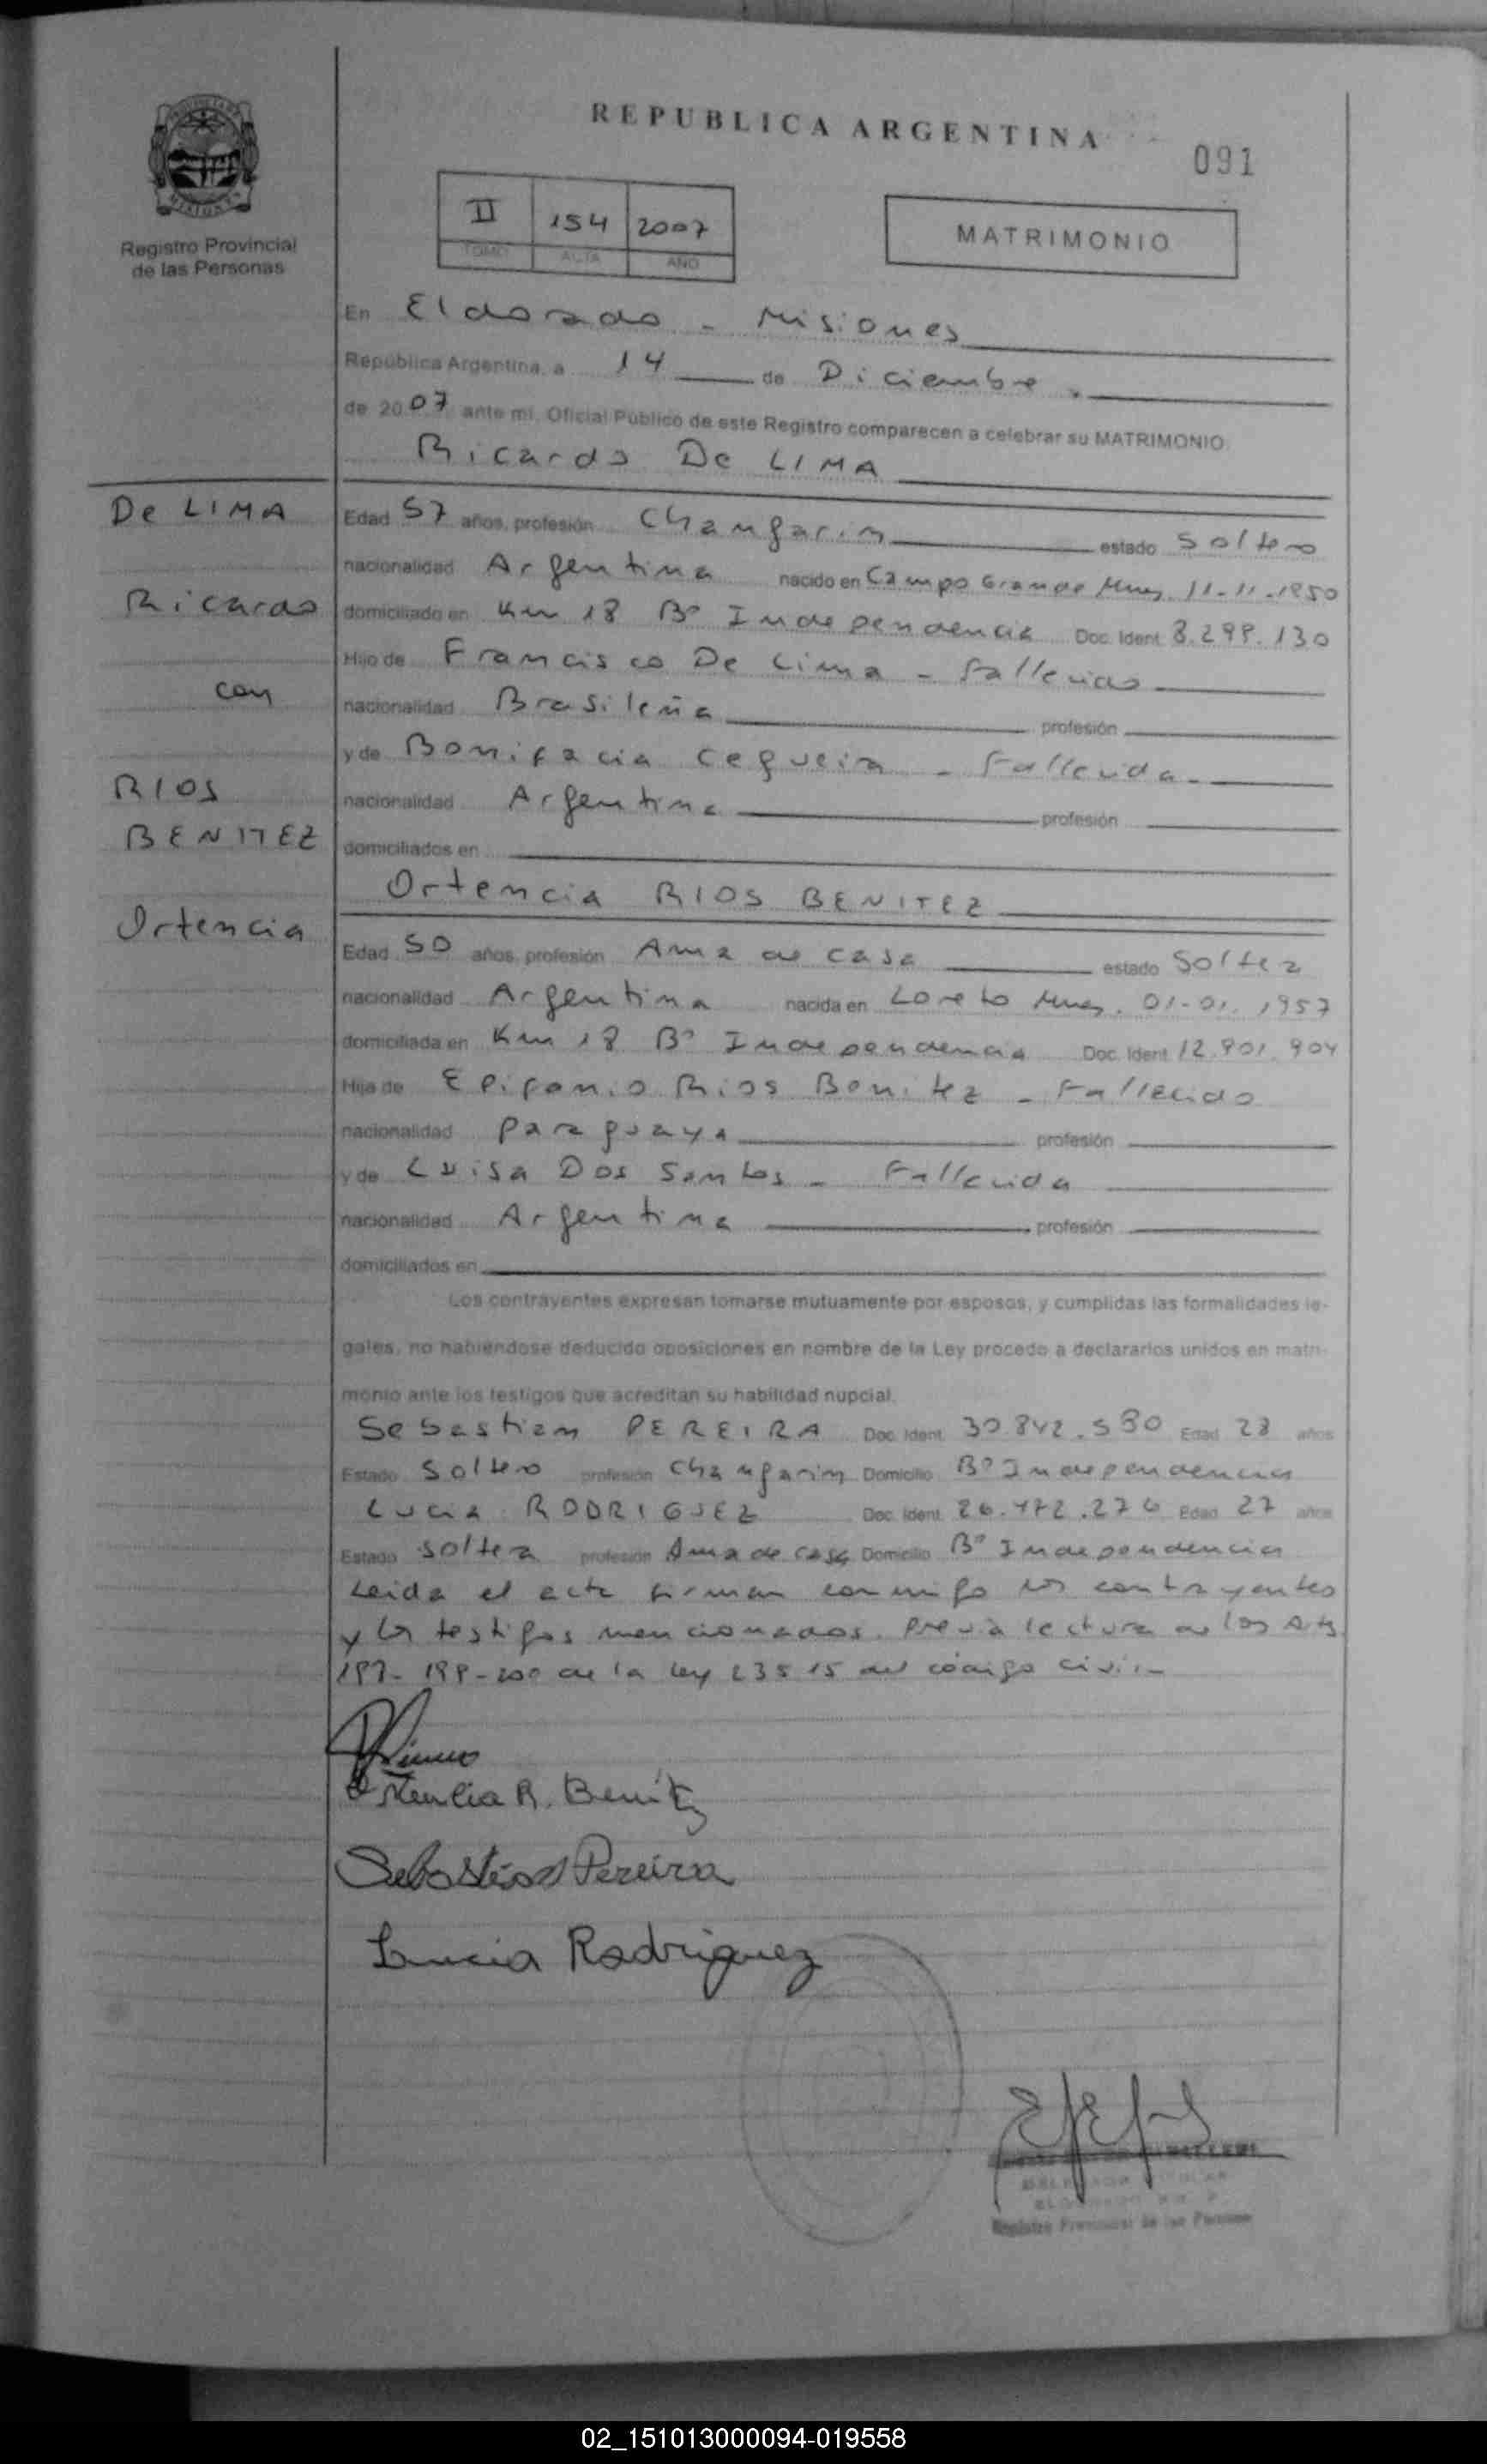 REPUBLICA ARGENTINA
091
Registro Provincial
de las Personas
II 154 2007
TOMO ACTA AÑO
MATRIMONIO
En Eldorado - Misiones
República Argentina, a 14 de Diciembre
de 2007 ante mi, Oficial Público de este Registro comparecen a celebrar su MATRIMONIO
Ricardo De LIMA
De LIMA
Ricardo
con
RIOS
BENITEZ
Ortencia
Edad 57 años, profesión Changarin estado Soltero
nacionalidad Argentina nacido en Campo Grande Mnes. 11-11-1950
domiciliado en Km 18 Bº Independencia Doc. Ident. 8.298.130
Hijo de Francisco De Lima - Fallecido
nacionalidad Brasileña profesión
y de Bonifacia Cequeira - Fallecida -
nacionalidad Argentina profesión
domiciliados en
Ortencia RIOS BENITEZ
Edad 50 años, profesión Ama de casa estado Soltera
nacionalidad Argentina nacida en Loreto Mnes. 01-01-1957
domiciliada en Km 18 Bº Independencia Doc. Ident. 12.901.904
Hija de Epifanio Rios Benitez - Fallecido
nacionalidad Paraguaya profesión
y de Luisa Dos Santos - Fallecida
nacionalidad Argentina profesión
domiciliados en
Los contrayentes expresan tomarse mutuamente por esposos, y cumplidas las formalidades le-
gales, no habiéndose deducido oposiciones en nombre de la Ley procedo a declararlos unidos en matri-
monio ante los testigos que acreditan su habilidad nupcial.
Sebastian PEREIRA Doc. Ident. 30.842.580 Edad 23 años
Estado Soltero profesión Changarin Domicilio Bº Independencia
Lucia RODRIGUEZ Doc. Ident. 26.472.276 Edad 27 años
Estado Soltera profesión Ama de casa Domicilio Bº Independencia
Leida el acta firman conmigo los contrayentes
y los testigos mencionados. Previa lectura de los Arts.
198-199-200 de la Ley 23515 del código civil-
Ortencia R. Benitez
Sebastian Pereira
Lucia Rodriguez
Registro Provincial de las Personas
02_151013000094-019558